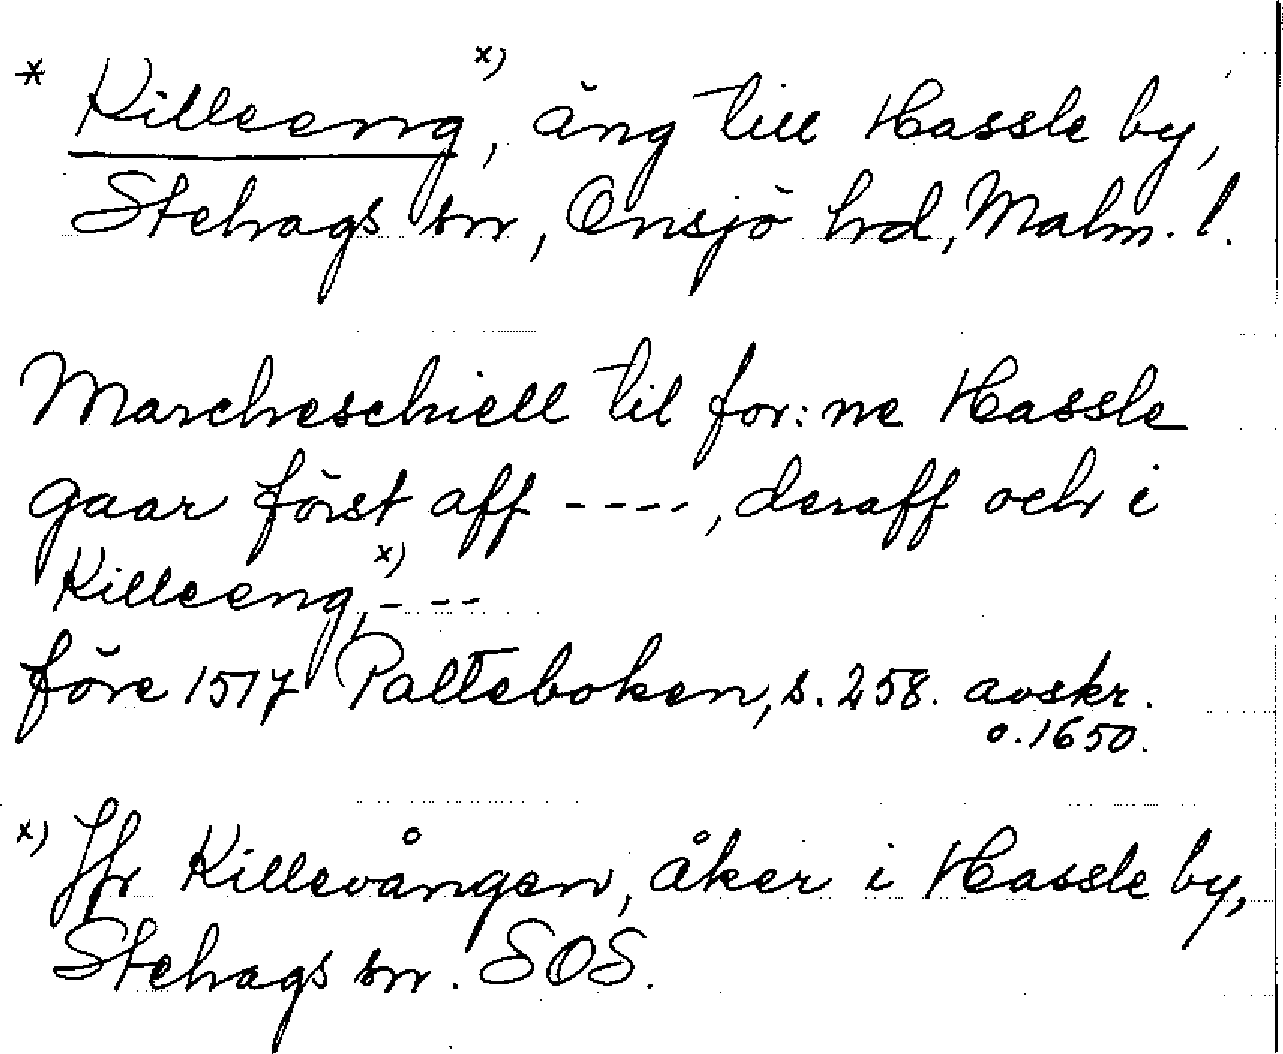 * Killeeng x), äng till Hassle by,
Stehags sn, Onsjö hd, Malm. l.
Marcheschiell til for:ne Hassle
gaar först aff ----, deraff och i
Killeeng, x) - - -
före 1517 Palteboken, s. 258. avskr.
o. 1650.
x) Jfr Killevången, åker i Hassle by,
Stehags sn. SOS.